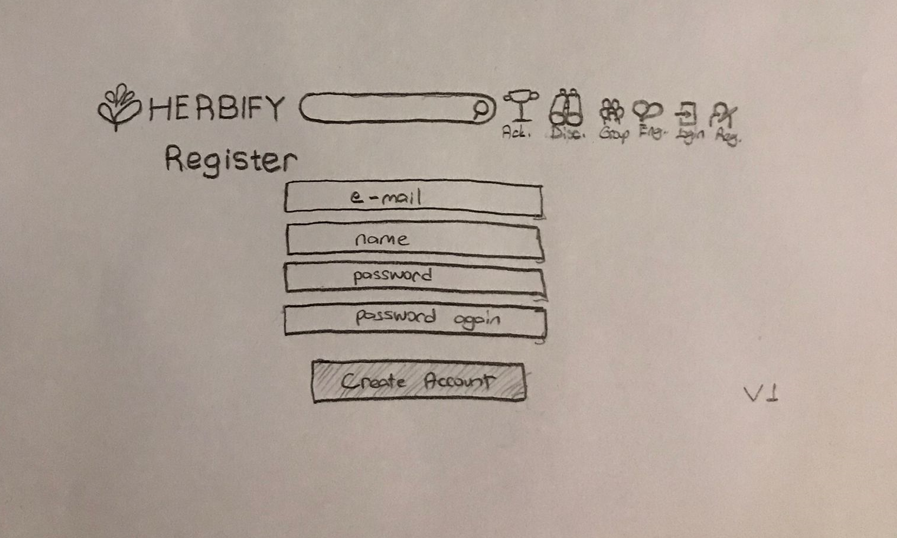 HERBIFY
Ach. Disc. Group Eng. Login Reg.
Register
e-mail
name
password
password again
Create Account
V1